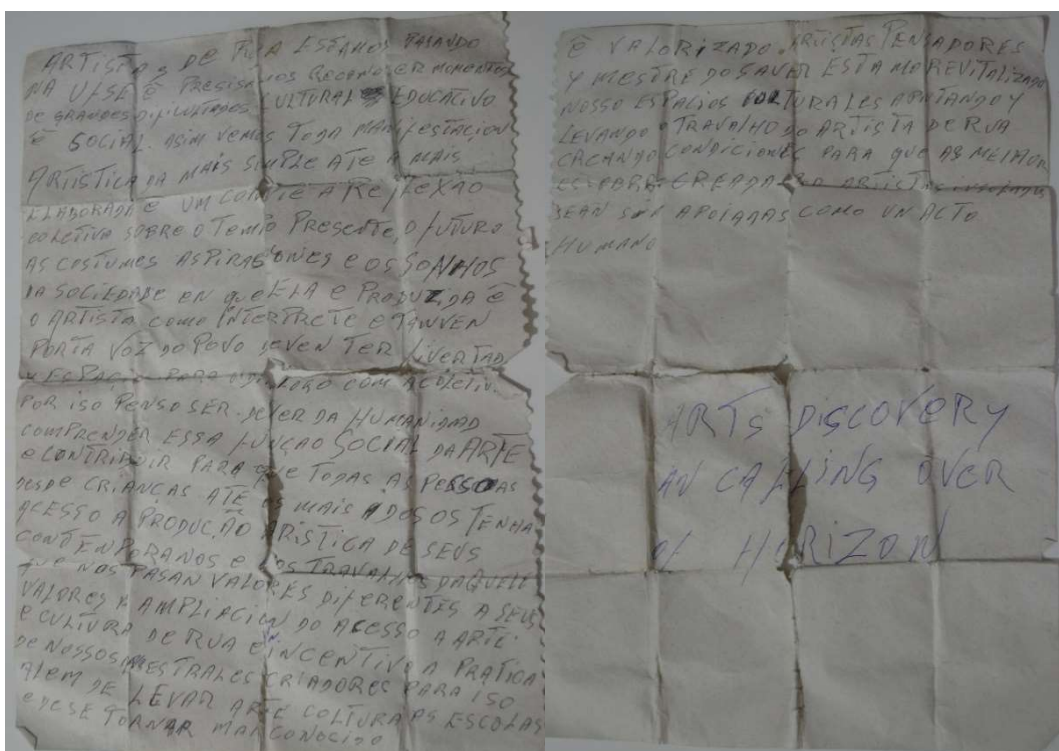 ARTISTA DE RUA ESTAMOS PASANDO
NA É PRECISAMOS RECONOCER MOMENTOS
DE GRANDES DIFICULTADES CULTURAL EDUCATIVO
É SOCIAL. ASIM VEMOS TODA MANIFESTACION
ARTISTICA DA MAIS SIMPLE ATE A MAIS
ELABORADA É UM CONVITE A REFLEXÃO
COLETIVA SOBRE O TEMPO PRESENTE, O FUTURO
AS COSTUMES ASPIRACIONES E OS SONHOS
DA SOCIEDADE EN QUE ELA E PRODUZIDA É
O ARTISTA COMO INTERPRETE E TANVEN
PORTA VOZ DO POVO DEVEN TER LIVERTAD
PARA O DIALOGO COM A COLETIV
POR ISO PENSO SER DEVER DA HUMANIDAD
COMPRENDER ESSA FUNÇAO SOCIAL DA ARTE
E CONTRIBUIR PARA QUE TODAS AS PERSOAS
DESDE CRIANÇAS ATÉ OS MAIS ADOSOS TENHA
ACESSO A PRODUCÃO ARISTICA DE SEUS
CONTENPORANOS E OS TRAVALHOS DAQUELE
QUE NOS PASAN VALORES DIFERENTES A SEUS
VALORES AMPLIACION DO ACESSO A ARTE
E CULTURA DE RUA E INCENTIVO A PRATICA
DE NOSSOS MESTRALES CRIADORES PARA ISO
ALEM DE LEVAR ARTE COLTURA AS ESCOLAS
E DE SE TORNAR MAI CONOCIDO
É VALORIZADO. ARTISTAS PENSADORES
Y MESTRE DO SAVER ESTAMO REVITALIZADO
NOSSO ESPACIOS COLTURALES APOTANDO Y
LEVANDO O TRAVALHO DO ARTISTA DE RUA
CREANDO CONDICIONES PARA QUE AS MELHOR
PARA ARTISTAS
SEAN SIN APOIADAS COMO UN ACTO
HUMANO
ARTS DISCOVERY
AN CALLING OVER
OF HORIZON